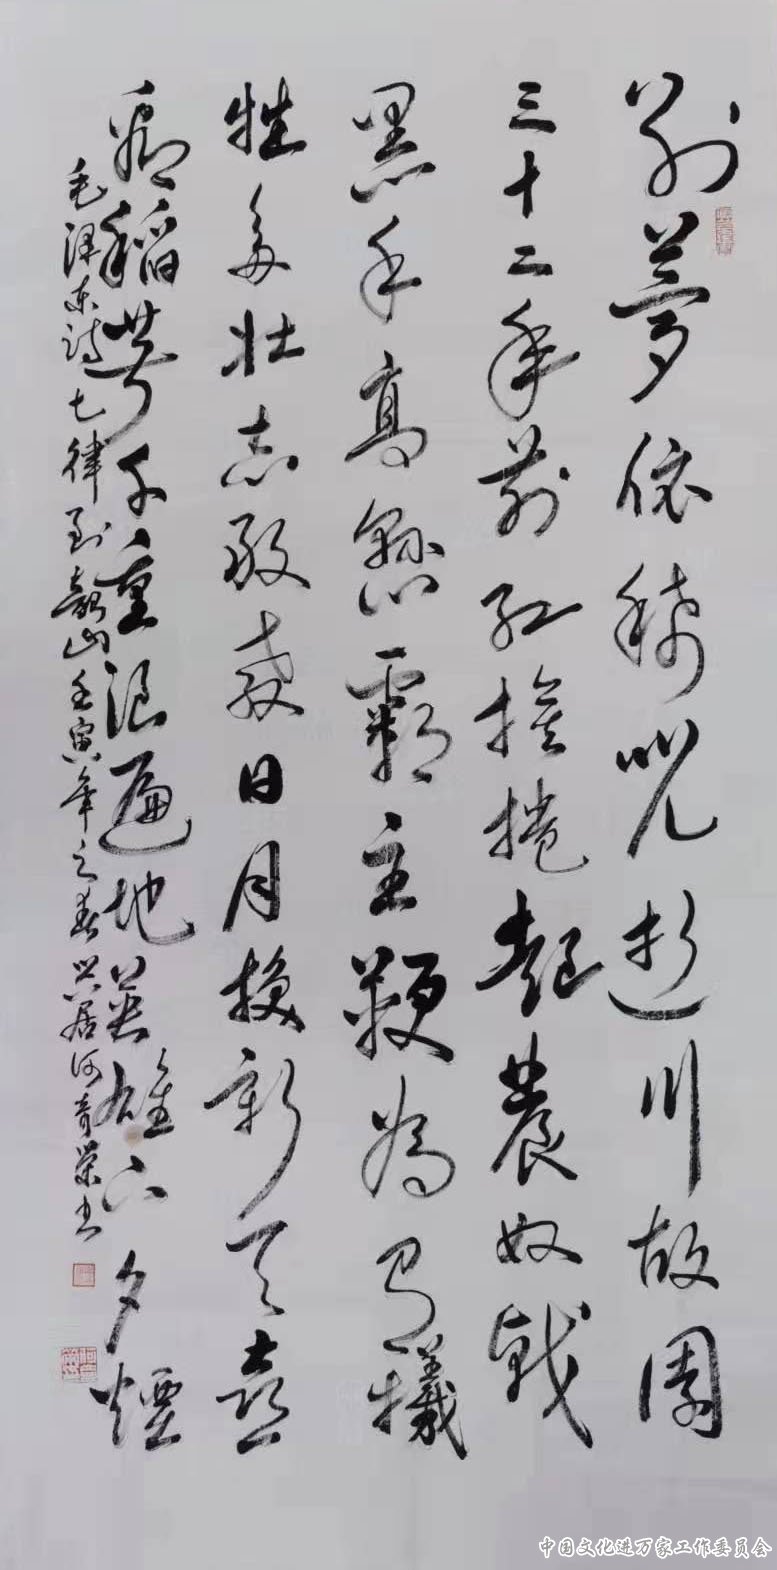 别夢依稀咒逝川故園
三十二年前红旗捲起農奴戟
黑手高懸霸主鞭為有犧
牲多壮志敢教日月换新天喜
看稻菽千重浪遍地英雄下夕煙
毛泽东诗七律到韶山壬寅年之春居何奇荣书
中国文化进万家工作委员会